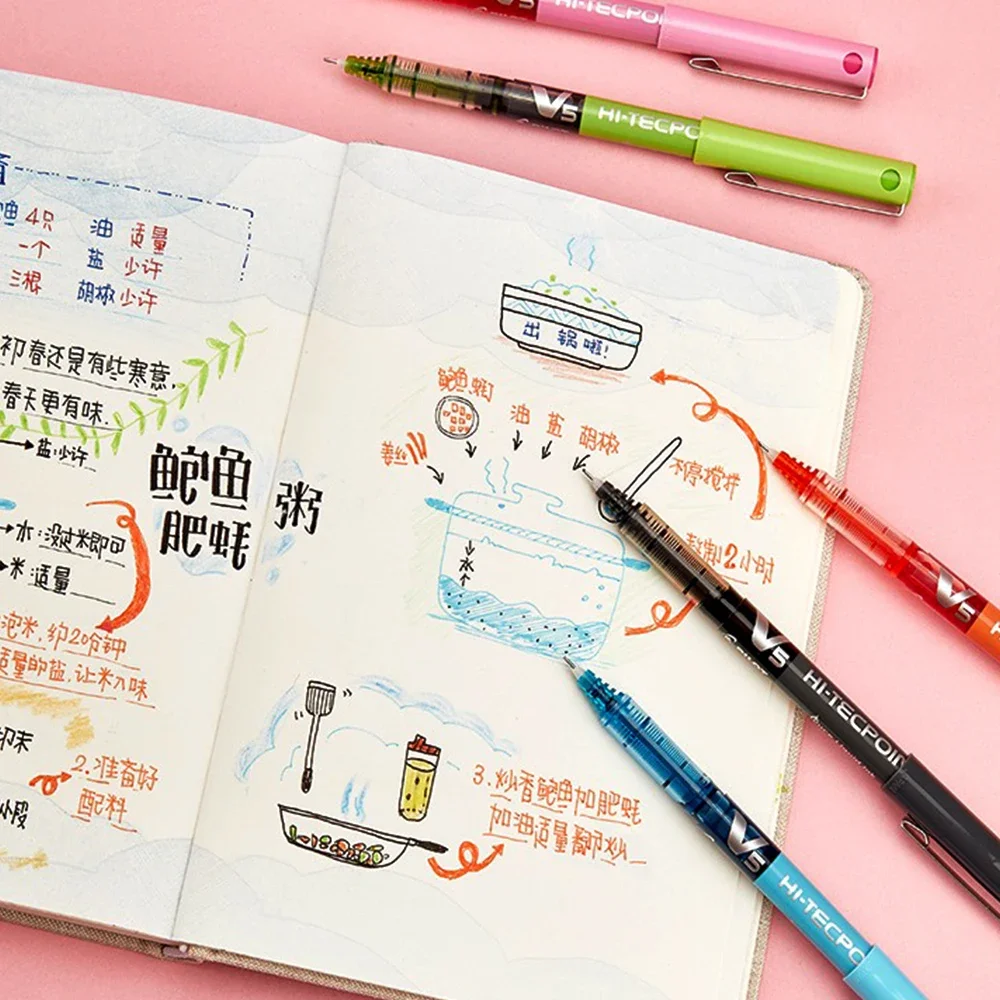 V5 HI-TECPO
V5 HI-TECPC
鲍 4只 油 适量
一个 盐 少许
三根 胡椒 少许
初春还是有些寒意.
春天更有味.
盐:少许
鲍鱼
肥蚝
粥
水:没过米即可
米 适量
泡米,约20分钟
适量的盐,让米入味
2.准备好
配料
出锅啦!
鲍鱼 蚝
姜丝
油 盐 胡椒
不停搅拌
熬制2小时
水
3.炒香鲍鱼加肥蚝
加油适量翻炒
V5
V5 HI-TECPOIN
V5 HI-TECPC